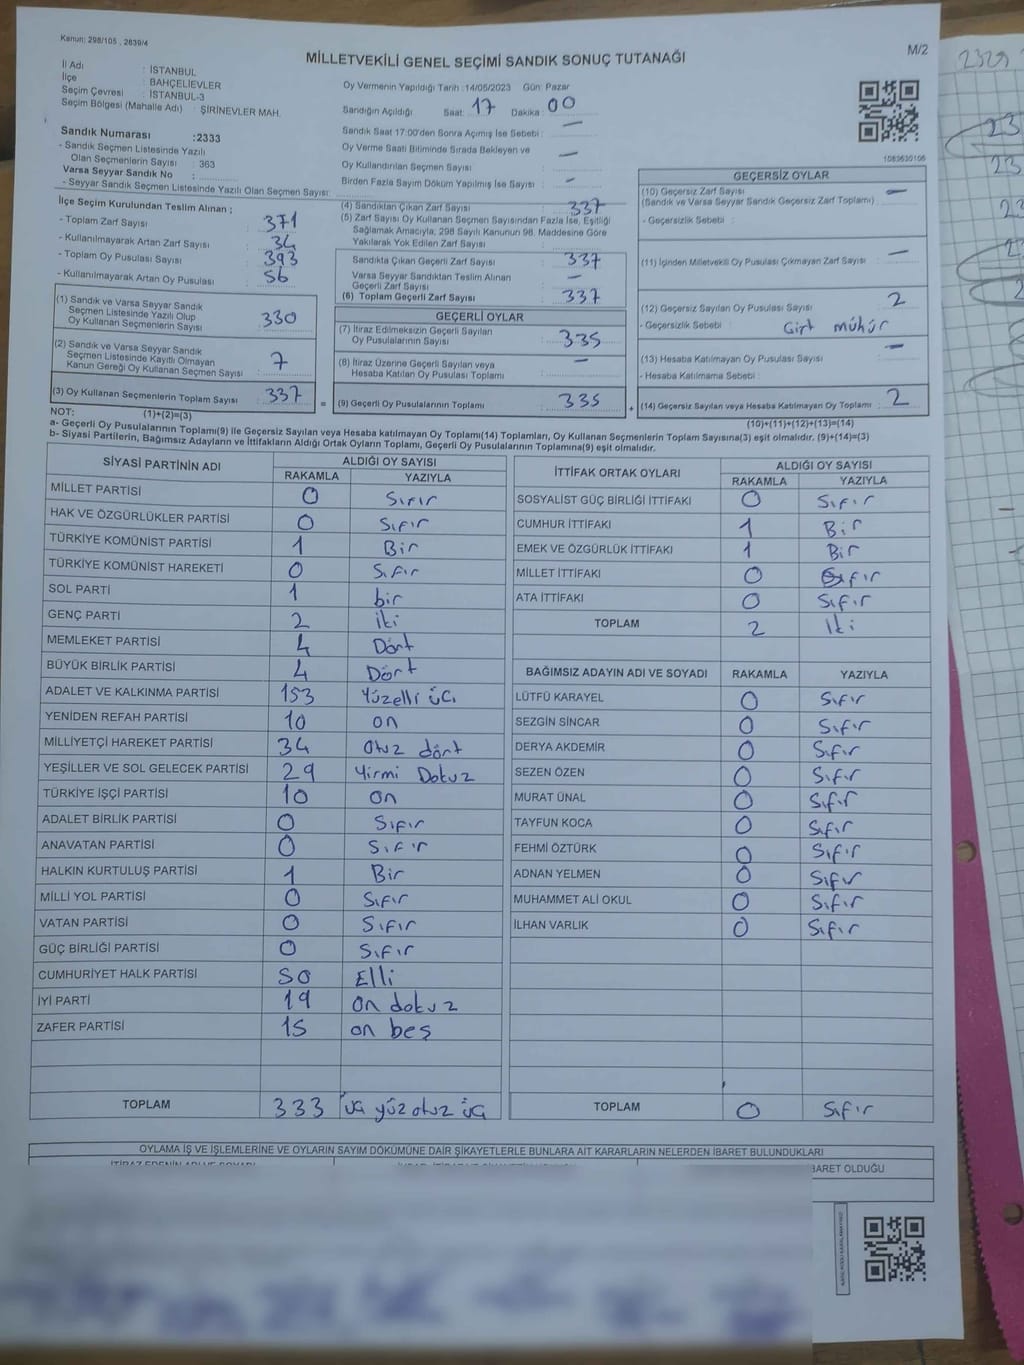 Kanun: 298/105 , 2839/4
M/2
MİLLETVEKİLİ GENEL SEÇİMİ SANDIK SONUÇ TUTANAĞI
İl Adı : İSTANBUL
İlçe : BAHÇELİEVLER
Seçim Çevresi : İSTANBUL-3
Seçim Bölgesi (Mahalle Adı) : ŞİRİNEVLER MAH.
Sandık Numarası :2333
- Sandık Seçmen Listesinde Yazılı
Olan Seçmenlerin Sayısı : 363
Varsa Seyyar Sandık No :
- Seyyar Sandık Seçmen Listesinde Yazılı Olan Seçmen Sayısı:
Oy Vermenin Yapıldığı Tarih :14/05/2023 Gün: Pazar
Sandığın Açıldığı Saat: 17 Dakika: 00
Sandık Saat 17:00'den Sonra Açımış İse Sebebi : —
Oy Verme Saati Bitiminde Sırada Bekleyen ve
Oy Kullandırılan Seçmen Sayısı : —
Birden Fazla Sayım Döküm Yapılmış İse Sayısı : -
1083630106
İlçe Seçim Kurulundan Teslim Alınan ;
- Toplam Zarf Sayısı : 371
- Kullanılmayarak Artan Zarf Sayısı : 34
- Toplam Oy Pusulası Sayısı : 393
- Kullanılmayarak Artan Oy Pusulası : 56
(1) Sandık ve Varsa Seyyar Sandık
Seçmen Listesinde Yazılı Olup
Oy Kullanan Seçmenlerin Sayısı : 330
(2) Sandık ve Varsa Seyyar Sandık
Seçmen Listesinde Kayıtlı Olmayan
Kanun Gereği Oy Kullanan Seçmen Sayısı : 7
(3) Oy Kullanan Seçmenlerin Toplam Sayısı : 337
(4) Sandıktan Çıkan Zarf Sayısı : 337
(5) Zarf Sayısı Oy Kullanan Seçmen Sayısından Fazla İse, Eşitliği
Sağlamak Amacıyla, 298 Sayılı Kanunun 98. Maddesine Göre
Yakılarak Yok Edilen Zarf Sayısı :
Sandıkta Çıkan Geçerli Zarf Sayısı : 337
Varsa Seyyar Sandıktan Teslim Alınan
Geçerli Zarf Sayısı : —
(6) Toplam Geçerli Zarf Sayısı : 337
GEÇERLİ OYLAR
(7) İtiraz Edilmeksizin Geçerli Sayılan
Oy Pusulalarının Sayısı : 335
(8) İtiraz Üzerine Geçerli Sayılan veya
Hesaba Katılan Oy Pusulası Toplamı : —
= (9) Geçerli Oy Pusulalarının Toplamı : 335
GEÇERSİZ OYLAR
(10) Geçersiz Zarf Sayısı —
(Sandık ve Varsa Seyyar Sandık Geçersiz Zarf Toplamı) :
- Geçersizlik Sebebi :
(11) İçinden Milletvekili Oy Pusulası Çıkmayan Zarf Sayısı : —
(12) Geçersiz Sayılan Oy Pusulası Sayısı : 2
- Geçersizlik Sebebi : Çift mühür
(13) Hesaba Katılmayan Oy Pusulası Sayısı : —
- Hesaba Katılmama Sebebi :
+ (14) Geçersiz Sayılan veya Hesaba Katılmayan Oy Toplamı : 2
NOT: (1)+(2)=(3)
(10)+(11)+(12)+(13)=(14)
a- Geçerli Oy Pusulalarının Toplamı(9) ile Geçersiz Sayılan veya Hesaba katılmayan Oy Toplamı(14) Toplamları, Oy Kullanan Seçmenlerin Toplam Sayısına(3) eşit olmalıdır. (9)+(14)=(3)
b- Siyasi Partilerin, Bağımsız Adayların ve İttifakların Aldığı Ortak Oyların Toplamı, Geçerli Oy Pusulalarının Toplamına(9) eşit olmalıdır.
SİYASİ PARTİNİN ADI ALDIĞI OY SAYISI
RAKAMLA YAZIYLA
MİLLET PARTİSİ 0 Sıfır
HAK VE ÖZGÜRLÜKLER PARTİSİ 0 Sıfır
TÜRKİYE KOMÜNİST PARTİSİ 1 Bir
TÜRKİYE KOMÜNİST HAREKETİ 0 Sıfır
SOL PARTİ 1 bir
GENÇ PARTİ 2 iki
MEMLEKET PARTİSİ 4 Dört
BÜYÜK BİRLİK PARTİSİ 4 Dört
ADALET VE KALKINMA PARTİSİ 153 Yüzelli üç
YENİDEN REFAH PARTİSİ 10 on
MİLLİYETÇİ HAREKET PARTİSİ 34 Otuz dört
YEŞİLLER VE SOL GELECEK PARTİSİ 29 Yirmi Dokuz
TÜRKİYE İŞÇİ PARTİSİ 10 On
ADALET BİRLİK PARTİSİ 0 Sıfır
ANAVATAN PARTİSİ 0 Sıfır
HALKIN KURTULUŞ PARTİSİ 1 Bir
MİLLİ YOL PARTİSİ 0 Sıfır
VATAN PARTİSİ 0 Sıfır
GÜÇ BİRLİĞİ PARTİSİ 0 Sıfır
CUMHURİYET HALK PARTİSİ 50 Elli
İYİ PARTİ 19 On dokuz
ZAFER PARTİSİ 15 on beş
TOPLAM 333 üç yüz otuz üç
İTTİFAK ORTAK OYLARI ALDIĞI OY SAYISI
RAKAMLA YAZIYLA
SOSYALİST GÜÇ BİRLİĞİ İTTİFAKI 0 Sıfır
CUMHUR İTTİFAKI 1 Bir
EMEK VE ÖZGÜRLÜK İTTİFAKI 1 Bir
MİLLET İTTİFAKI 0 Sıfır
ATA İTTİFAKI 0 Sıfır
TOPLAM 2 İki
BAĞIMSIZ ADAYIN ADI VE SOYADI RAKAMLA YAZIYLA
LÜTFÜ KARAYEL 0 Sıfır
SEZGİN SİNCAR 0 Sıfır
DERYA AKDEMİR 0 Sıfır
SEZEN ÖZEN 0 Sıfır
MURAT ÜNAL 0 Sıfır
TAYFUN KOCA 0 Sıfır
FEHMİ ÖZTÜRK 0 Sıfır
ADNAN YELMEN 0 Sıfır
MUHAMMET ALİ OKUL 0 Sıfır
İLHAN VARLIK 0 Sıfır
TOPLAM 0 Sıfır
OYLAMA İŞ VE İŞLEMLERİNE VE OYLARIN SAYIM DÖKÜMÜNE DAİR ŞİKAYETLERLE BUNLARA AİT KARARLARIN NELERDEN İBARET BULUNDUKLARI
İBARET OLDUĞU
2329